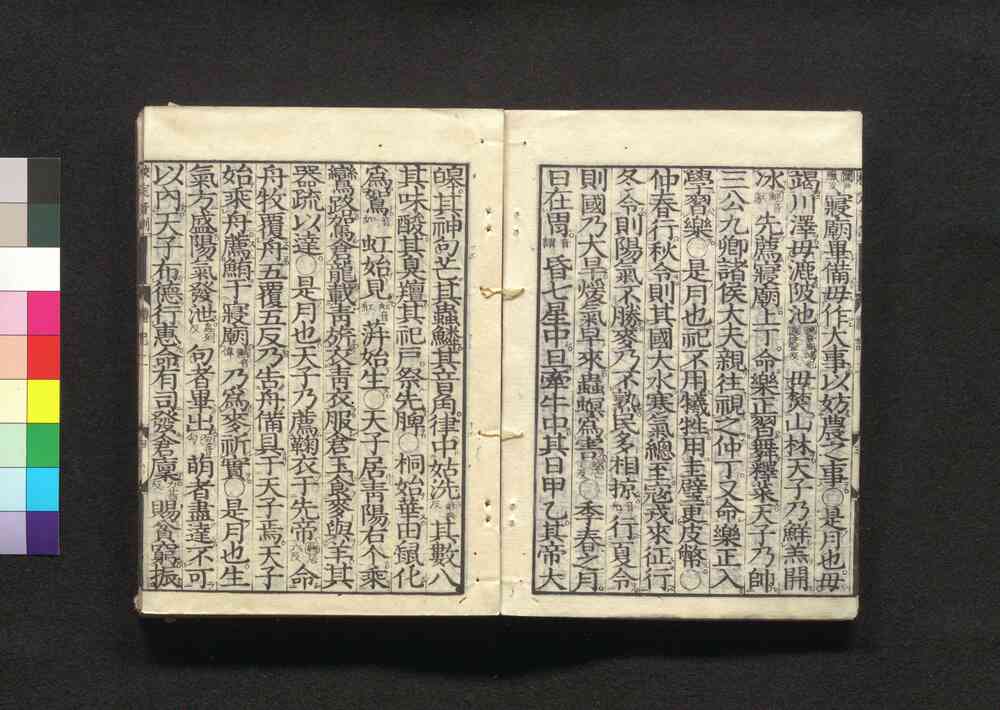 寢廟畢備毋作大事以妨農之事○是月也毋
竭川澤毋漉陂池毋焚山林天子乃鮮羔開
冰先薦寢廟上丁命樂正習舞釋菜天子乃帥
三公九卿諸侯大夫親往視之仲丁又命樂正入
學習樂○是月也祀不用犧牲用圭璧更皮幣○
仲春行秋令則其國大水寒氣總至寇戎來征行
冬令則陽氣不勝麥乃不熟民多相掠行夏令
則國乃大旱煖氣早來蟲螟爲害○季春之月
日在胃昏七星中旦牽牛中其日甲乙其帝大
皥其神句芒其蟲鱗其音角律中姑洗其數八
其味酸其臭羶其祀戸祭先脾○桐始華田鼠化
爲鴽虹始見蓱始生○天子居青陽右个乘
鸞路駕倉龍載青旂衣青衣服倉玉食麥與羊其
器疏以達○是月也天子乃薦鞠衣于先帝命
舟牧覆舟五覆五反乃告舟備具于天子焉天子
始乘舟薦鮪于寢廟乃爲麥祈實○是月也生
氣方盛陽氣發泄句者畢出萌者盡達不可
以內天子布德行惠命有司發倉廩賜貧窮振